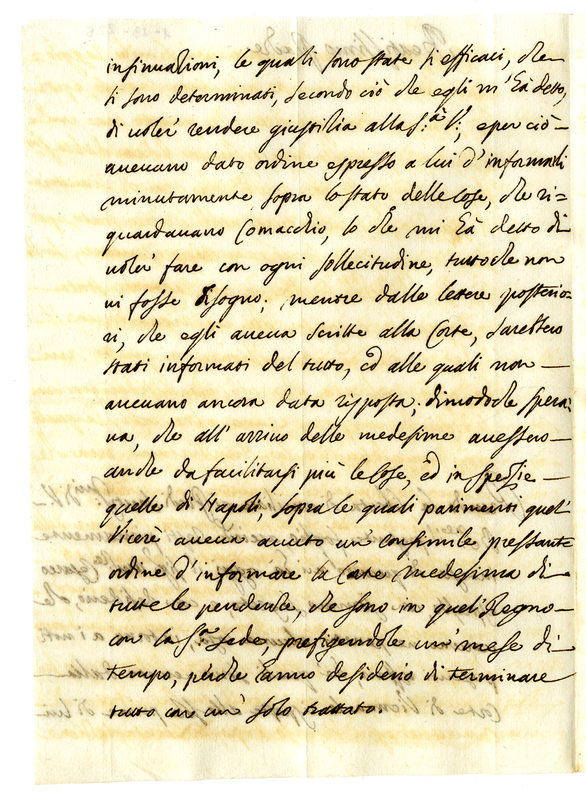 insinuazioni, le quali sono state sì efficaci, che
si sono determinati, secondo ciò che egli m'hà detto,
di voler' rendere giustitia alla S.ᵗᵃ V:, e per ciò —
avevano dato ordine espresso a lui d'informarli
minutamente sopra lo stato delle cose, che ri=
guardavano Comacchio, lo che mi hà detto di
voler' fare con ogni sollecitudine, tutto che non
vi fosse bisogno; mentre dalle lettere posterio=
ri, che egli aveva scritte alla Corte, sarebbero
stati informati del tutto, ed alle quali non —
avevano ancora data risposta; dimodoche spera=
va, che all'arrivo delle medesime avessero —
anche da facilitarsi più le cose, ed in spezie —
quelle di Napoli, sopra le quali parimenti quel
Vicerè aveva avuto un' consimile pressante
ordine d'informare la Corte medesima di —
tutte le pendenze, che sono in quel Regno —
con la S.ᵗᵃ Sede, prefigendole un' mese di
tempo, perche hanno desiderio di terminare
tutto con un' solo trattato.